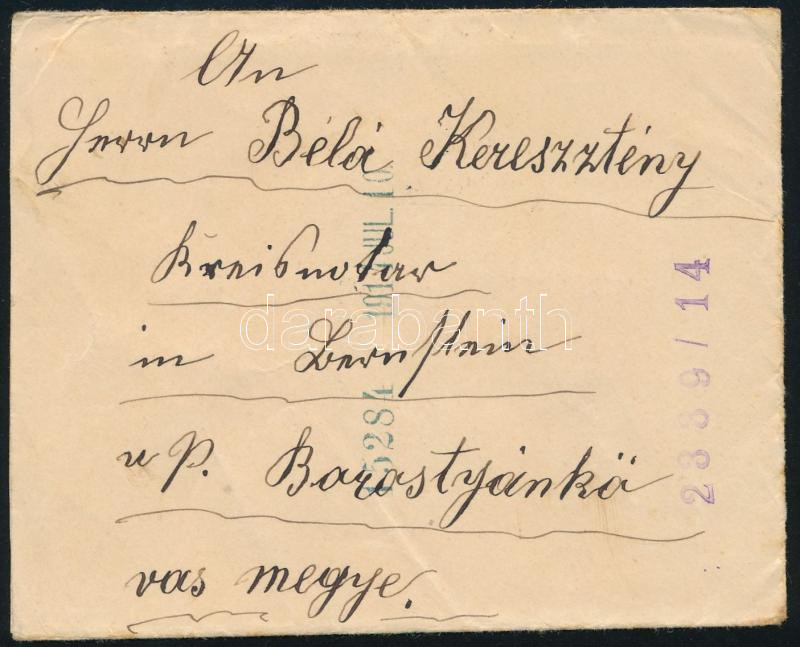 An
Herrn Béla Keresztény
Kreisnotar
in Bernstein
u P. Borostyánkö
vas megye.
15284 1914 JUL. 10.
2339/14
darabanth